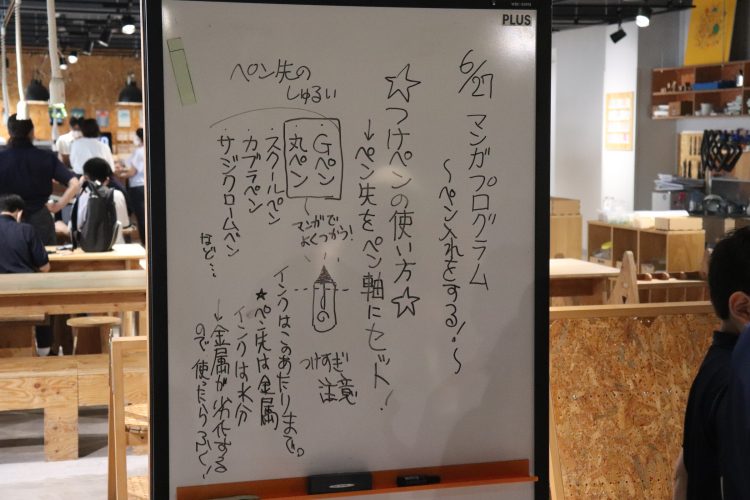 PLUS
6/27 マンガプログラム
〜ペン入れをする!〜
☆つけペンの使い方☆
→ペン先をペン軸にセット!
ペン先の
しゅるい
・Gペン
・丸ペン
・スクールペン
・カブラペン
・サジクロームペン
など…
マンガで
よくつかう!
インクはこのあたりまで。
つけすぎ
注意
★ペン先は金属
インクは水分
→金属が劣化する
ので使ったらふく!